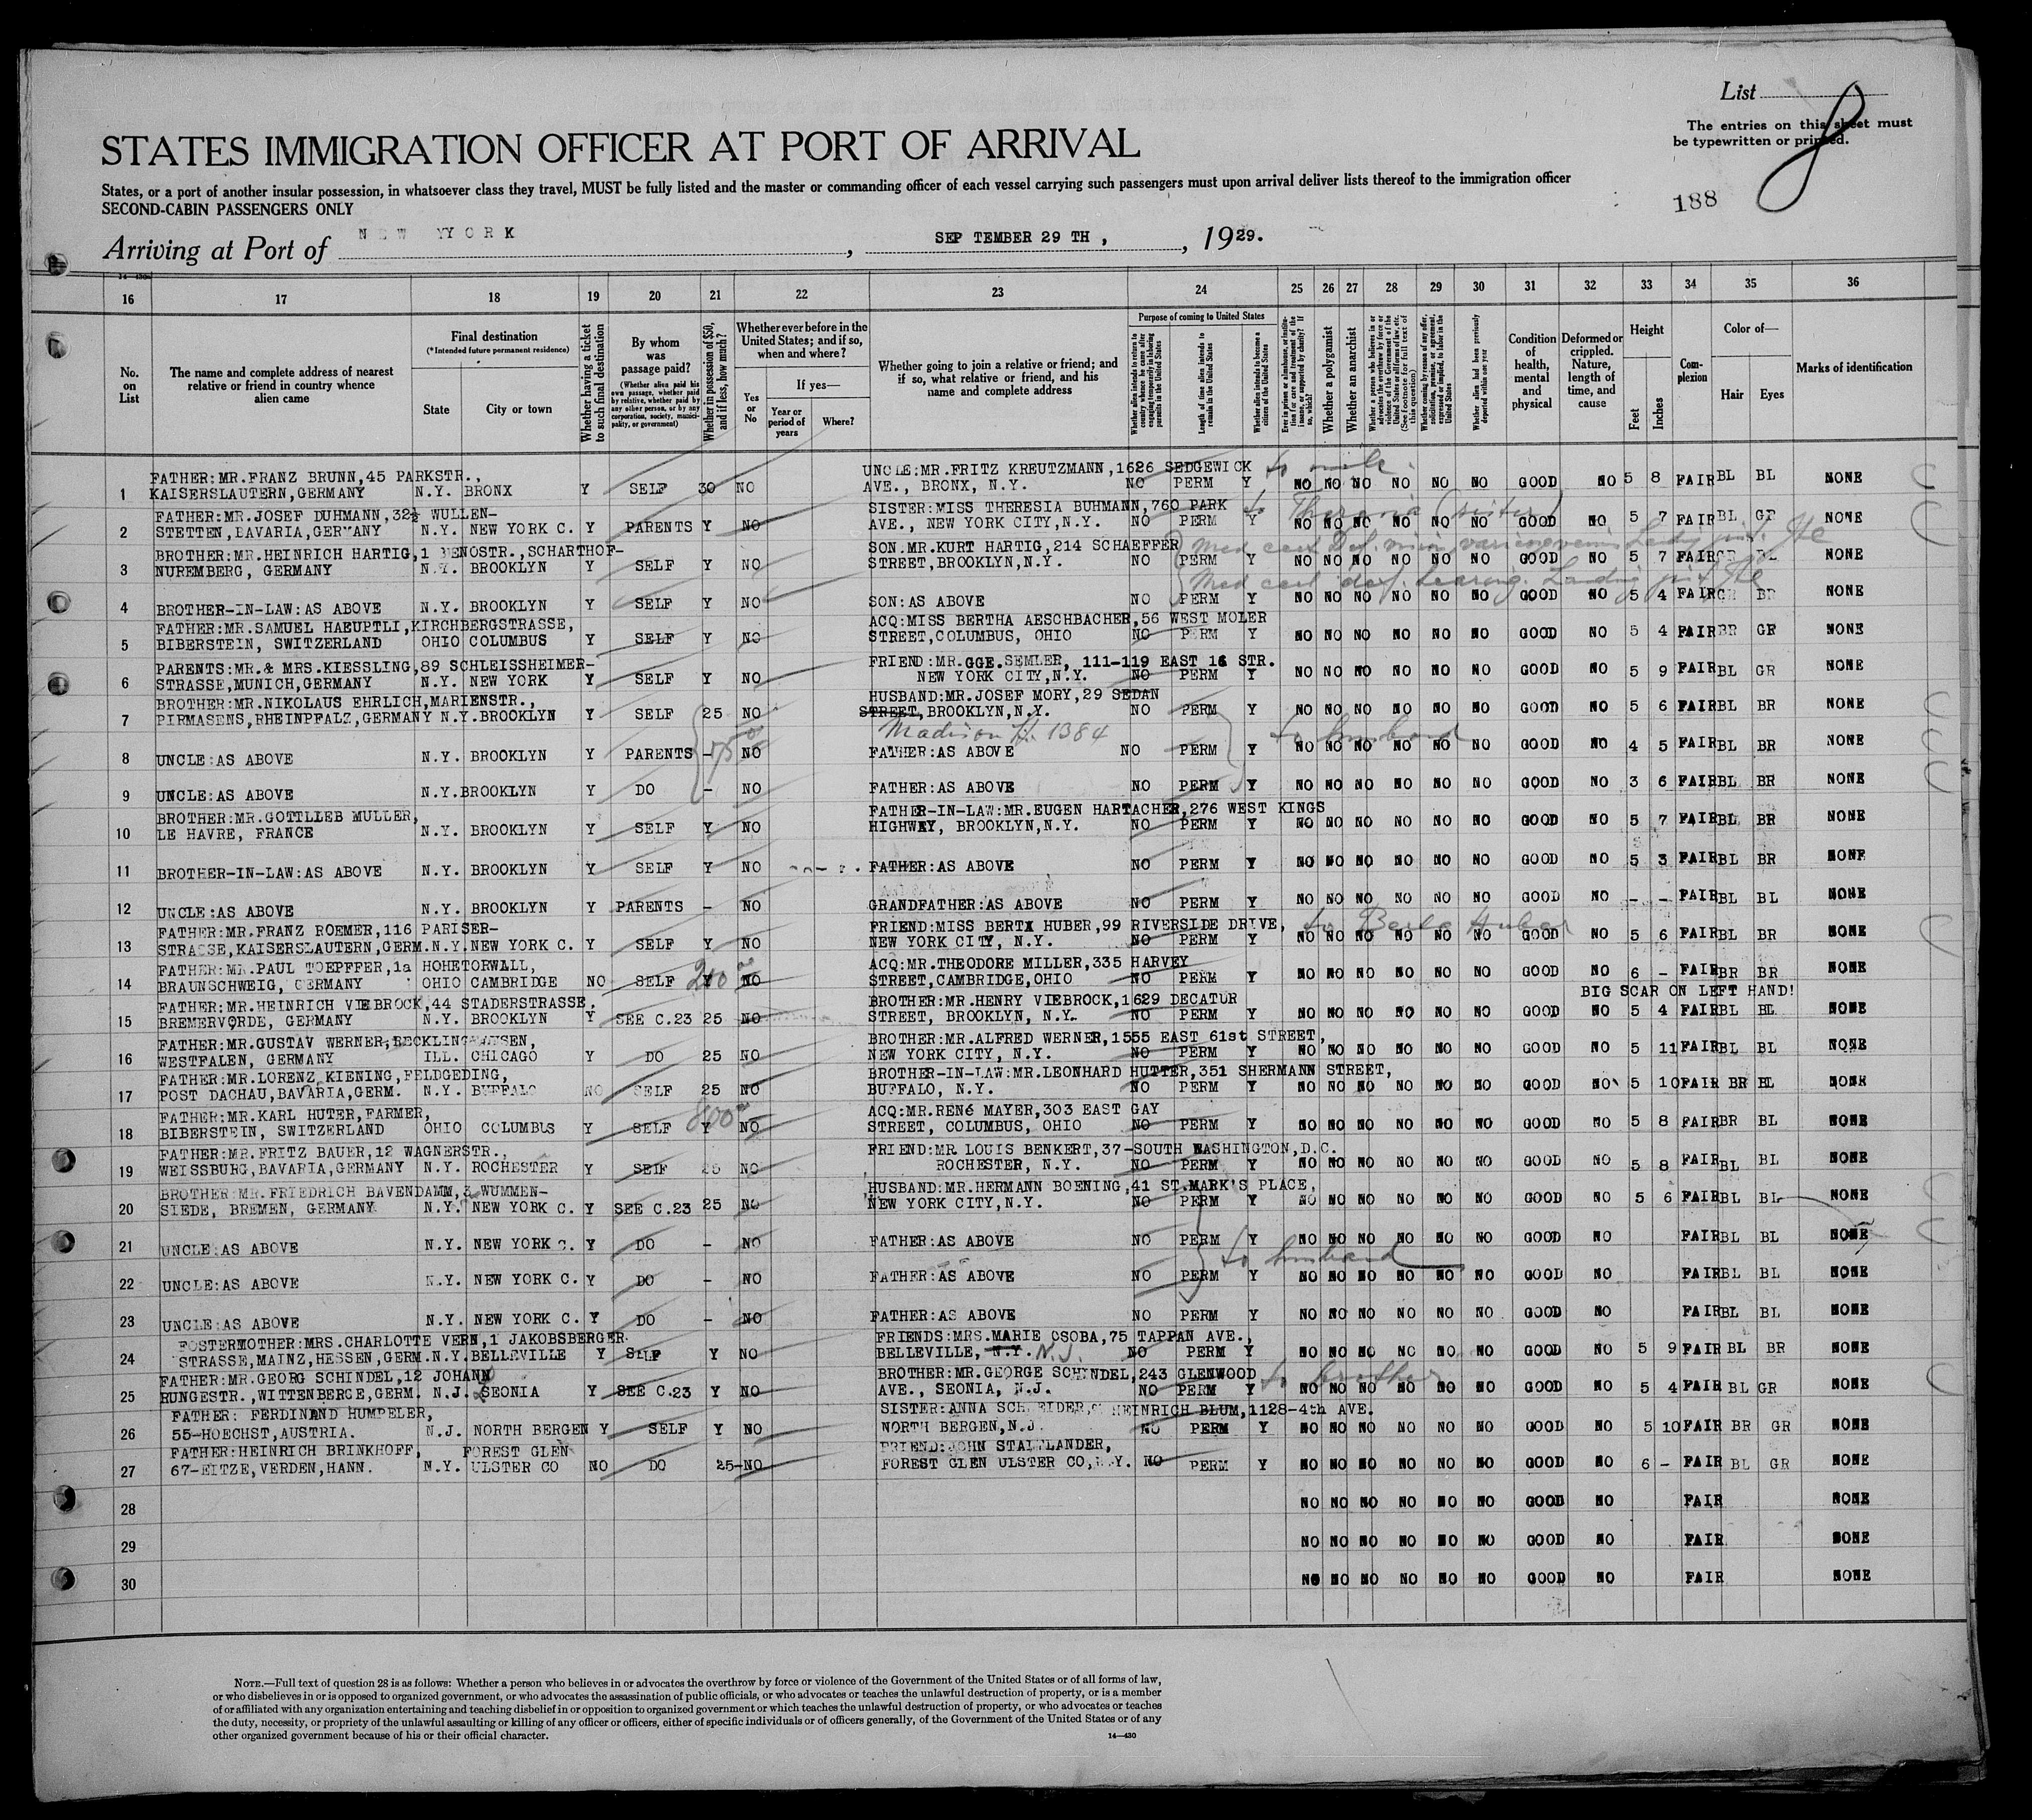 List 8
The entries on this sheet must
be typewritten or printed.
STATES IMMIGRATION OFFICER AT PORT OF ARRIVAL
States, or a port of another insular possession, in whatsoever class they travel, MUST be fully listed and the master or commanding officer of each vessel carrying such passengers must upon arrival deliver lists thereof to the immigration officer
SECOND-CABIN PASSENGERS ONLY
188
Arriving at Port of NEW YYORK, SEP TEMBER 29 TH, , 1929.
14—430
16 17 18 19 20 21 22 23 24 25 26 27 28 29 30 31 32 33 34 35 36
No. on List
The name and complete address of nearest relative or friend in country whence alien came
Final destination
(*Intended future permanent residence)
State
City or town
Whether having a ticket to such final destination
By whom was passage paid?
(Whether alien paid his own passage, whether paid by relative, whether paid by any other person, or by any corporation, society, municipality, or government)
Whether in possession of $50, and if less, how much?
Whether ever before in the United States; and if so, when and where?
Yes or No
If yes—
Year or period of years
Where?
Whether going to join a relative or friend; and if so, what relative or friend, and his name and complete address
Purpose of coming to United States
Whether alien intends to return to country whence he came after engaging temporarily in laboring pursuits in the United States
Length of time alien intends to remain in the United States
Whether alien intends to become a citizen of the United States
Ever in prison or almshouse, or institution for care and treatment of the insane, or supported by charity? If so, which?
Whether a polygamist
Whether an anarchist
Whether a person who believes in or advocates the overthrow by force or violence of the Government of the United States or all forms of law, etc. (See footnote for full text of this question)
Whether coming by reason of any offer, solicitation, promise, or agreement, expressed or implied, to labor in the United States
Whether alien had been previously deported within one year
Condition of health, mental and physical
Deformed or crippled. Nature, length of time, and cause
Height
Feet
Inches
Complexion
Color of—
Hair
Eyes
Marks of identification
FATHER:MR.FRANZ BRUNN,45 PARKSTR., UNCLE:MR.FRITZ KREUTZMANN,1626 SEDGEWICK to uncle.
1 KAISERSLAUTERN,GERMANY N.Y. BRONX Y SELF 30 NO AVE., BRONX, N.Y. NO PERM Y NO NO NO NO NO NO GOOD NO 5 8 FAIR BL BL NONE
FATHER:MR.JOSEF DUHMANN,32½ WULLEN- SISTER:MISS THERESIA BUHMANN,760 PARK to Theresia (sister)
2 STETTEN,BAVARIA,GERMANY N.Y. NEW YORK C. Y PARENTS Y NO AVE., NEW YORK CITY,N.Y. NO PERM Y NO NO NO NO NO NO GOOD NO 5 7 FAIR BL GR NONE
BROTHER:MR.HEINRICH HARTIG,1 SCHARTHOF- SON:MR.KURT HARTIG,214 SCHAEFFER Med cert Def. vision
3 NUREMBERG, GERMANY N.Y. BROOKLYN Y SELF Y NO STREET,BROOKLYN,N.Y. NO PERM Y NO NO NO NO NO NO GOOD NO 5 7 FAIR NONE
Med cert def. hearing. Landing
4 BROTHER-IN-LAW:AS ABOVE N.Y. BROOKLYN Y SELF Y NO SON:AS ABOVE NO PERM Y NO NO NO NO NO NO GOOD NO 5 4 FAIR GR BR NONE
FATHER:MR.SAMUEL HAEUPTLI,KIRCHBERGSTRASSE, ACQ:MISS BERTHA AESCHBACHER,56 WEST MOLER
5 BIBERSTEIN, SWITZERLAND OHIO COLUMBUS Y SELF Y NO STREET,COLUMBUS, OHIO NO PERM Y NO NO NO NO NO NO GOOD NO 5 4 FAIR BR GR NONE
PARENTS:MR.& MRS.KIESSLING,89 SCHLEISSHEIMER- FRIEND:MR.GGE.SEMLER, 111-119 EAST 16 STR.
6 STRASSE,MUNICH,GERMANY N.Y. NEW YORK Y SELF Y NO NEW YORK CITY,N.Y. NO PERM Y NO NO NO NO NO NO GOOD NO 5 9 FAIR BL GR NONE
BROTHER:MR.NIKOLAUS EHRLICH,MARIENSTR., HUSBAND:MR.JOSEF MORY,29 SEDAN
7 PIRMASENS,RHEINPFALZ,GERMANY N.Y.BROOKLYN Y SELF 25 NO STREET,BROOKLYN,N.Y. NO PERM Y NO NO NO NO NO NO GOOD NO 5 6 FAIR BL BR NONE
Madison St. 1384 to husband
8 UNCLE:AS ABOVE N.Y. BROOKLYN Y PARENTS - NO FATHER:AS ABOVE NO PERM Y NO NO NO NO NO NO GOOD NO 4 5 FAIR BL BR NONE
9 UNCLE:AS ABOVE N.Y.BROOKLYN Y DO - NO FATHER:AS ABOVE NO PERM Y NO NO NO NO NO NO GOOD NO 3 6 FAIR BL BR NONE
BROTHER:MR.GOTTLLEB MULLER, FATHER-IN-LAW:MR.EUGEN HARTACHER,276 WEST KINGS
10 LE HAVRE, FRANCE N.Y. BROOKLYN Y SELF Y NO HIGHWAY, BROOKLYN,N.Y. NO PERM Y NO NO NO NO NO NO GOOD NO 5 7 FAIR BL BR NONE
11 BROTHER-IN-LAW:AS ABOVE N.Y. BROOKLYN Y SELF Y NO FATHER:AS ABOVE NO PERM Y NO NO NO NO NO NO GOOD NO 5 3 FAIR BL BR NONE
12 UNCLE:AS ABOVE N.Y. BROOKLYN Y PARENTS - NO GRANDFATHER:AS ABOVE NO PERM Y NO NO NO NO NO NO GOOD NO - - FAIR BL BL NONE
FATHER:MR.FRANZ ROEMER,116 PARISER- FRIEND:MISS BERTX HUBER,99 RIVERSIDE DRIVE, to Berta Huber
13 STRASSE,KAISERSLAUTERN,GERM.N.Y.NEW YORK C. Y SELF Y NO NEW YORK CITY, N.Y. NO PERM Y NO NO NO NO NO NO GOOD NO 5 6 FAIR BL BR NONE
FATHER:MR.PAUL TOEPFFER,1a HOHETORWALL, ACQ:MR.THEODORE MILLER,335 HARVEY
14 BRAUNSCHWEIG, GERMANY OHIO CAMBRIDGE NO SELF Y NO STREET,CAMBRIDGE,OHIO NO PERM Y NO NO NO NO NO NO GOOD NO 6 - FAIR BR BR NONE
FATHER:MR.HEINRICH VIEBROCK,44 STADERSTRASSE, BROTHER:MR.HENRY VIEBROCK,1629 DECATUR BIG SCAR ON LEFT HAND!
15 BREMERVORDE, GERMANY N.Y. BROOKLYN Y SEE C.23 25 NO STREET, BROOKLYN, N.Y. NO PERM Y NO NO NO NO NO NO GOOD NO 5 4 FAIR BL BL NONE
FATHER:MR.GUSTAV WERNER, BROTHER:MR.ALFRED WERNER,1555 EAST 61st STREET,
16 WESTFALEN, GERMANY ILL. CHICAGO Y DO 25 NO NEW YORK CITY, N.Y. NO PERM Y NO NO NO NO NO NO GOOD NO 5 11 FAIR BL BL NONE
FATHER:MR.LORENZ KIENING,FELDGEDING, BROTHER-IN-LAW:MR.LEONHARD HUTTER,351 SHERMANN STREET,
17 POST DACHAU,BAVARIA,GERM. N.Y. BUFFALO NO SELF 25 NO BUFFALO, N.Y. NO PERM Y NO NO NO NO NO NO GOOD NO 5 10 FAIR BR BL NONE
FATHER:MR.KARL HUTER,FARMER, ACQ:MR.RENé MAYER,303 EAST GAY
18 BIBERSTEIN, SWITZERLAND OHIO COLUMBUS Y SELF Y NO STREET, COLUMBUS, OHIO NO PERM Y NO NO NO NO NO NO GOOD NO 5 8 FAIR BR BL NONE
FATHER:MR.FRITZ BAUER,12 WAGNERSTR., FRIEND:MR LOUIS BENKERT,37-SOUTH WASHINGTON,D.C.
19 WEISSBURG,BAVARIA,GERMANY N.Y. ROCHESTER Y SELF 25 NO ROCHESTER, N.Y. NO PERM Y NO NO NO NO NO NO GOOD NO 5 8 FAIR BL BL NONE
BROTHER:MR.FRIEDRICH BAVENDAMM,3 WUMMEN- HUSBAND:MR.HERMANN BOENING,41 ST.MARK'S PLACE,
20 SIEDE, BREMEN, GERMANY N.Y. NEW YORK C. Y SEE C.23 25 NO NEW YORK CITY,N.Y. NO PERM Y NO NO NO NO NO NO GOOD NO 5 6 FAIR BL BL NONE
21 UNCLE:AS ABOVE N.Y. NEW YORK C. Y DO - NO FATHER:AS ABOVE NO PERM Y NO NO NO NO NO NO GOOD NO FAIR BL BL NONE
to husband
22 UNCLE:AS ABOVE N.Y. NEW YORK C. Y DO - NO FATHER:AS ABOVE NO PERM Y NO NO NO NO NO NO GOOD NO FAIR BL BL NONE
23 UNCLE:AS ABOVE N.Y. NEW YORK C. Y DO - NO FATHER:AS ABOVE NO PERM Y NO NO NO NO NO NO GOOD NO FAIR BL BL NONE
FOSTERMOTHER:MRS.CHARLOTTE VERN,1 JAKOBSBERGER FRIENDS:MRS.MARIE OSOBA,75 TAPPAN AVE.,
24 STRASSE,MAINZ,HESSEN,GERM.N.Y.BELLEVILLE Y SELF Y NO BELLEVILLE, N.Y. N.J. NO PERM Y NO NO NO NO NO NO GOOD NO 5 9 FAIR BL BR NONE
FATHER:MR.GEORG SCHINDEL,12 JOHANN BROTHER:MR.GEORGE SCHINDEL,243 GLENWOOD to brother
25 RUNGESTR.,WITTENBERGE,GERM. N.J. SEONIA Y SEE C.23 Y NO AVE., SEONIA, N.J. NO PERM Y NO NO NO NO NO NO GOOD NO 5 4 FAIR BL GR NONE
FATHER: FERDINAND HUMPELER, SISTER:ANNA SCHNEIDER, HEINRICH BLUM,1128-4th AVE.
26 55-HOECHST,AUSTRIA. N.J. NORTH BERGEN Y SELF Y NO NORTH BERGEN,N.J. NO PERM Y NO NO NO NO NO NO GOOD NO 5 10 FAIR BR GR NONE
FATHER:HEINRICH BRINKHOFF, FOREST GLEN FRIEND:JOHN STADTLANDER,
27 67-EITZE,VERDEN,HANN. N.Y. ULSTER CO NO DO 25-NO FOREST GLEN ULSTER CO,N.Y. NO PERM Y NO NO NO NO NO NO GOOD NO 6 - FAIR BL GR NONE
28 NO NO NO NO NO NO GOOD NO FAIR NONE
29 NO NO NO NO NO NO GOOD NO FAIR NONE
30 NO NO NO NO NO NO GOOD NO FAIR NONE
NOTE.—Full text of question 28 is as follows: Whether a person who believes in or advocates the overthrow by force or violence of the Government of the United States or of all forms of law,
or who disbelieves in or is opposed to organized government, or who advocates the assassination of public officials, or who advocates or teaches the unlawful destruction of property, or is a member
of or affiliated with any organization entertaining and teaching disbelief in or opposition to organized government or which teaches the unlawful destruction of property, or who advocates or teaches
the duty, necessity, or propriety of the unlawful assaulting or killing of any officer or officers, either of specific individuals or of officers generally, of the Government of the United States or of any
other organized government because of his or their official character.
14—430